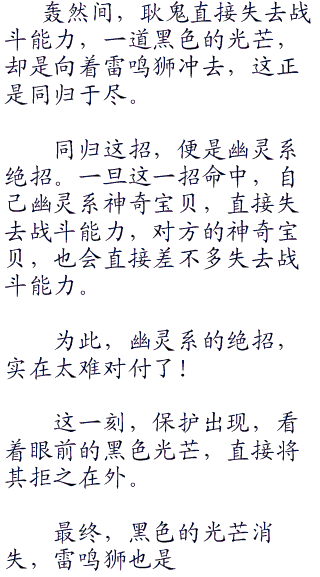 轰然间，耿鬼直接失去战
斗能力，一道黑色的光芒，
却是向着雷鸣狮冲去，这正
是同归于尽。
同归这招，便是幽灵系
绝招。一旦这一招命中，自
己幽灵系神奇宝贝，直接失
去战斗能力，对方的神奇宝
贝，也会直接差不多失去战
斗能力。
为此，幽灵系的绝招，
实在太难对付了！
这一刻，保护出现，看
着眼前的黑色光芒，直接将
其拒之在外。
最终，黑色的光芒消
失，雷鸣狮也是